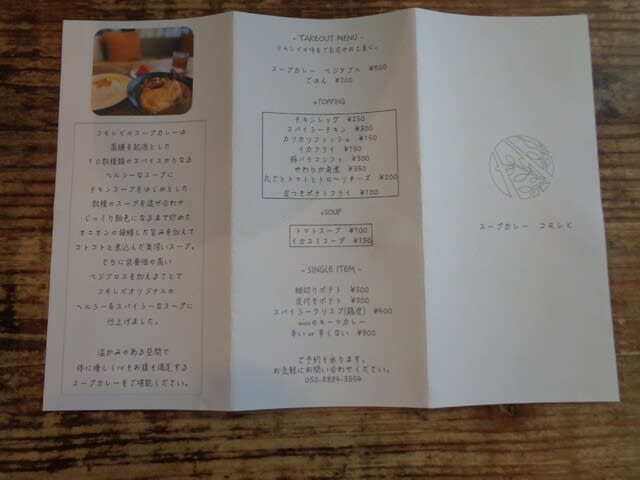 コモレビのスープカレーは
薬膳を起源とした
10数種類のスパイスからなる
ヘルシーなスープに
チキンスープをはじめとした
数種のスープを混ぜ合わせ
じっくり飴色になるまで炒めた
オニオンの凝縮した旨みを加えて
コトコトと煮込んだ奥深いスープ。
さらに栄養価の高い
ベジブロスを加えることで
コモレビオリジナルの
ヘルシー&スパイシーなスープに
仕上げました。
温かみのある空間で
体に優しく心もお腹も満足する
スープカレーをご堪能ください。
- TAKEOUT MENU -
コモレビの味をご自宅やお土産に。
スープカレー ベジタブル ¥800
ごはん ¥200
*TOPPING
チキンレッグ ¥250
スパイシーチキン ¥300
カリカリフィッシュ ¥150
イカフライ ¥150
豚バラコンフィ ¥300
やわらか角煮 ¥350
丸ごとトマトとトロ〜リチーズ ¥200
皮つきポテトフライ ¥100
*SOUP
トマトスープ ¥100
イカスミスープ ¥150
- SINGLE ITEM -
細切りポテト ¥300
皮付きポテト ¥300
スパイシークリスプ(鶏皮) ¥400
niceのキーマカレー
辛い or 辛くない ¥800
ご予約も承ります。
お気軽にお問い合わせください。
050-8889-3554
スープカレー コモレビ